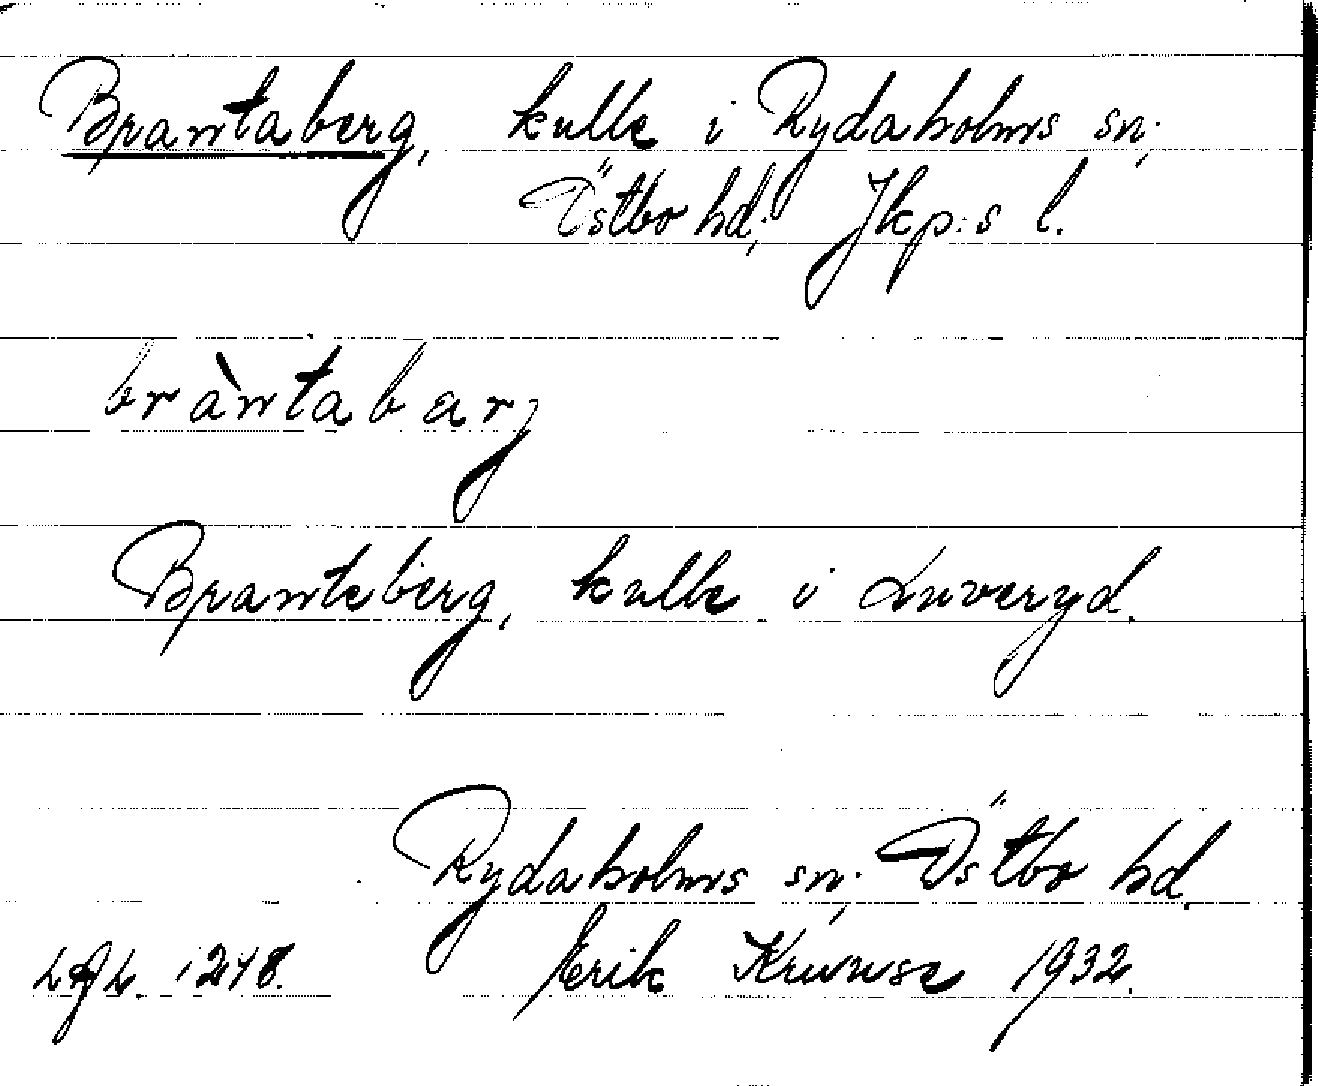 Brantaberg, kulle i Rydaholms sn;
Östbo hd; Jkp:s l.
bràntabarj
Branteberg, kulle i Luveryd.
Rydaholms sn; Östbo hd.
1248. Erik Kruuse 1932.